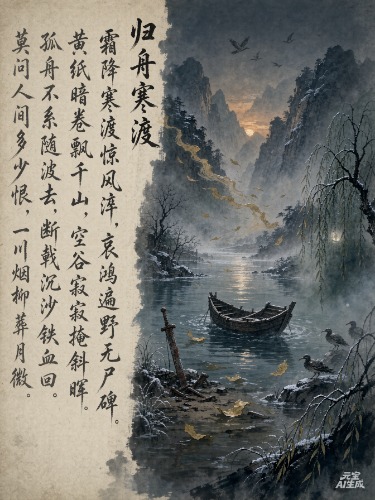 归舟寒渡
霜降寒渡惊风滓，哀鸿遍野无尸碑。
黄纸暗卷飘千山，空谷寂寂掩斜晖。
孤舟不系随波去，断戟沉沙铁血回。
莫问人间多少恨，一川烟柳葬月微。
元宝
AI生成